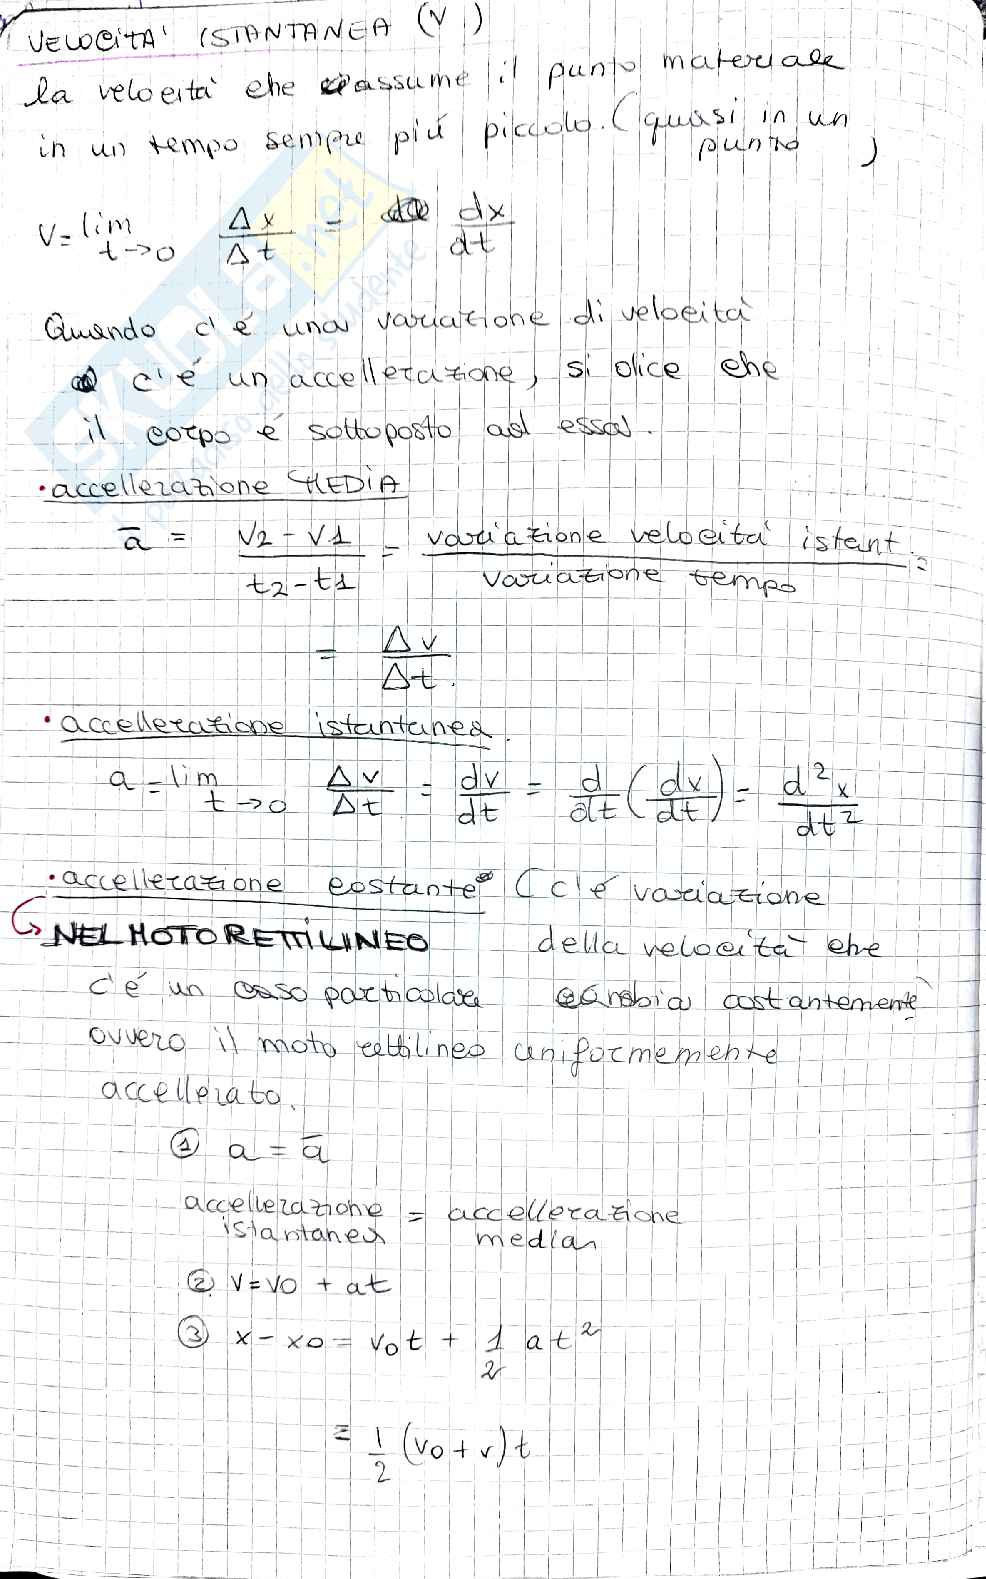 VELOCITA' ISTANTANEA (V)
la velocità che assume il punto materiale
in un tempo sempre più piccolo. (quasi in un
punto)
V = lim t→0 Δx/Δt = dx/dt
Quando c'é una variazione di velocità
c'é un accellerazione, si dice che
il corpo é sottoposto ad essa.
• accellerazione MEDIA
a̅ = V2-V1/t2-t1 = variazione velocità istant./variazione tempo =
= Δv/Δt.
• accellerazione istantanea.
a = lim t→0 Δv/Δt = dv/dt = d/dt (dx/dt) = d²x/dt²
• accellerazione costante (c'é variazione
NEL MOTO RETTILINEO della velocità che
c'é un caso particolare cambia costantemente
ovvero il moto rettilineo uniformemente
accellerato.
① a = a̅
accellerazione istantanea = accellerazione media
② V = V0 + at
③ x - x0 = v0t + 1/2 at²
= 1/2 (v0 + v)t
SKUOLA.net